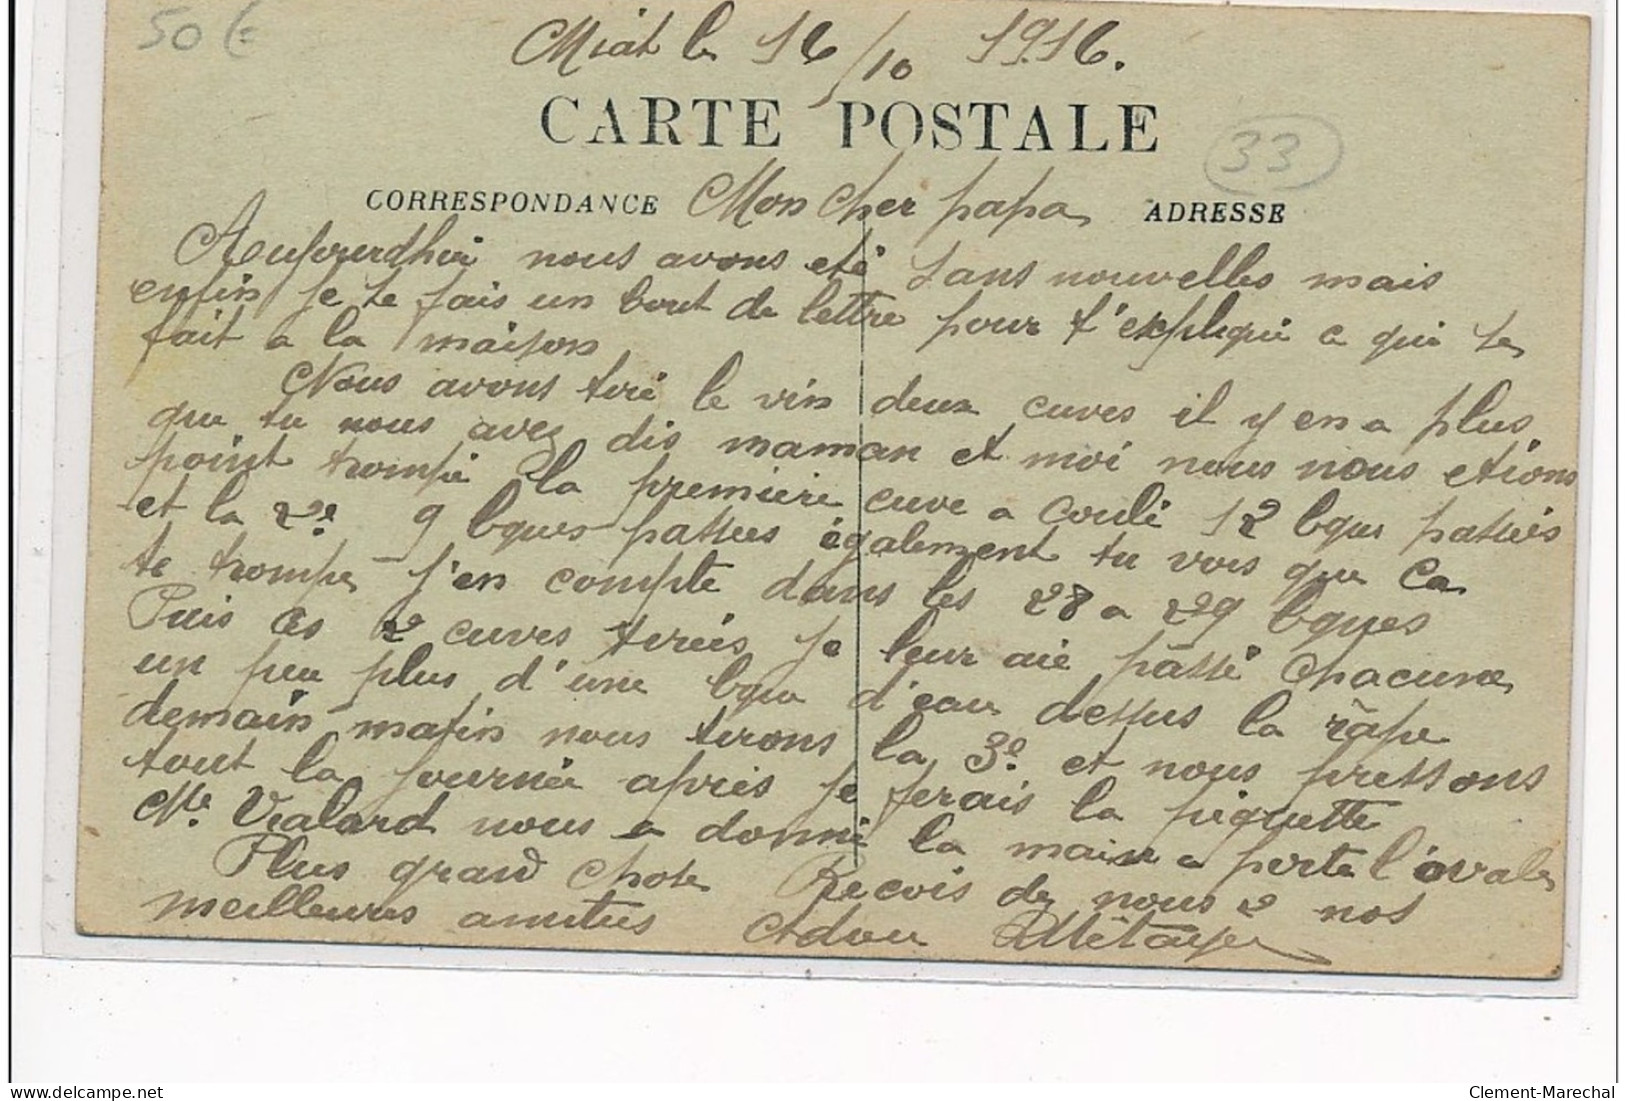 50 €
Miat le 16/10 1916.
CARTE POSTALE
33
CORRESPONDANCE Mon cher papa ADRESSE
Aujourdhui nous avons eté sans nouvelles mais
enfin je te fais un bout de lettre pour t'expliqué ce qui se
fait a la maison
Nous avons tiré le vin deux cuves il y en a plus
que tu nous avez dis maman et moi nous nous etions
point trompé la premiere cuve a coulé 12 bques passées
et la 2e. 9 bques passées également tu vois que ca
te trompe j'en compte dans les 28 a 29 bques
Puis ces 2 cuves tirées je leur aie passé chacune
un peu plus d'une bque d'eau dessus la râpe
demain matin nous tirons la 3e. et nous pressons
tout la journée apres je ferais la piquette
Vialard nous a donné la main a porte l'ovale
Plus grand chose Recois de nous 2 nos
meilleures amities Métayer
Clement-Marechal